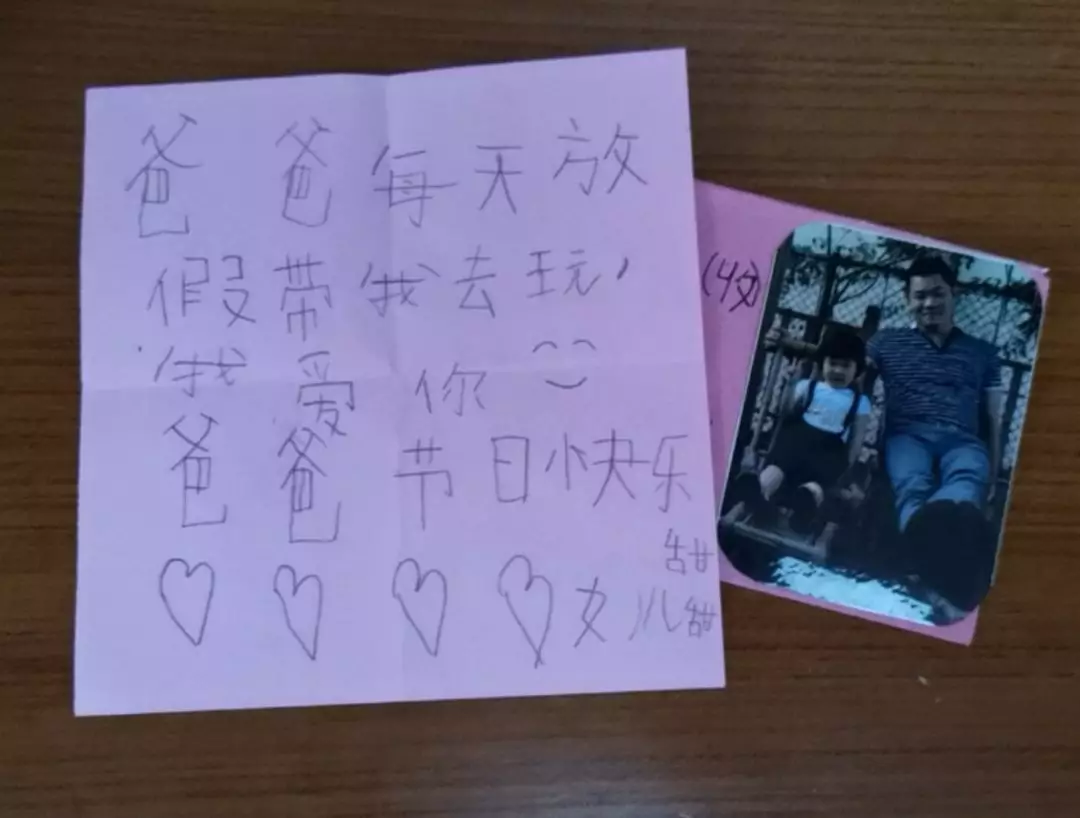 爸爸每天放
假带我去玩，
我爱你
爸爸节日快乐
女儿甜甜